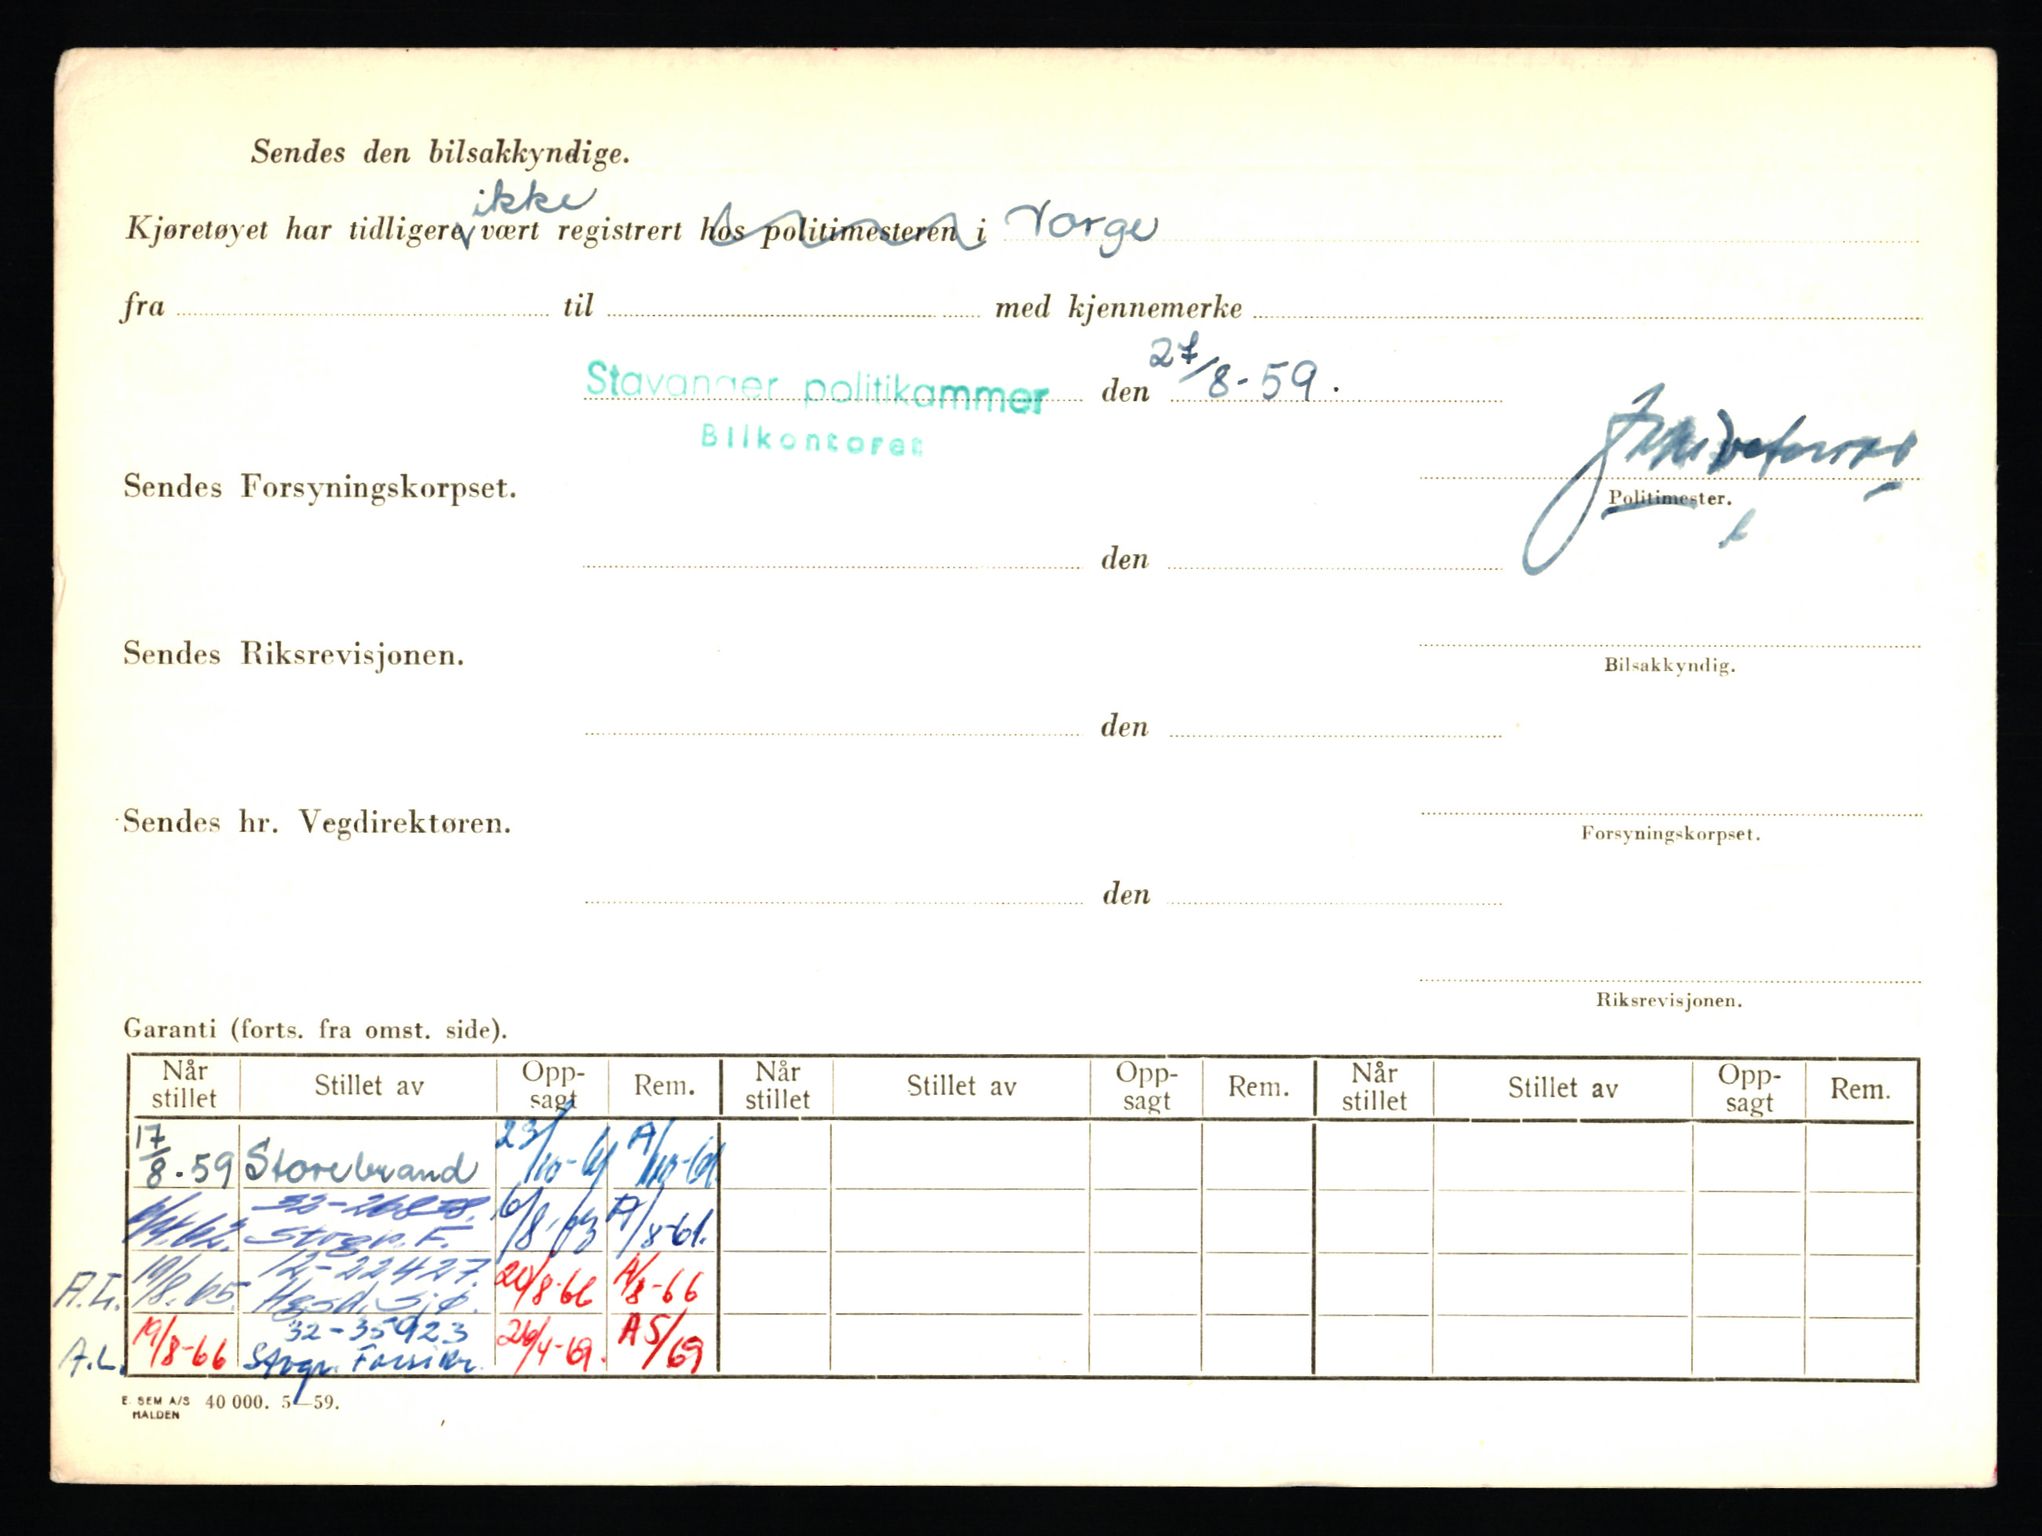 Sendes den bilsakkyndige.
ikke
Kjøretøyet har tidligere vært registrert hos politimesteren i Norge
fra til med kjennemerke
Stavanger politikammer den 27/8-59.
Bilkontoret
Sendes Forsyningskorpset.
Politimester.
den
Sendes Riksrevisjonen.
Bilsakkyndig.
den
Sendes hr. Vegdirektøren.
Forsyningskorpset.
den
Riksrevisjonen.
Garanti (forts. fra omst. side).
Når stillet Stillet av Opp-sagt Rem. Når stillet Stillet av Opp-sagt Rem. Når stillet Stillet av Opp-sagt Rem.
17/8-59 Storebrand 23/10-61 A/10-61
Stvgr. F. 6/8-63 A/8-61.
12-22427.
A.L. 19/8.65 20/8-66 A/8-66
32-35923
A.L. 19/8-66 Stvgr. Forsikr. 26/4-69. A5/69
E. SEM A/S 40 000. 5—59.
HALDEN